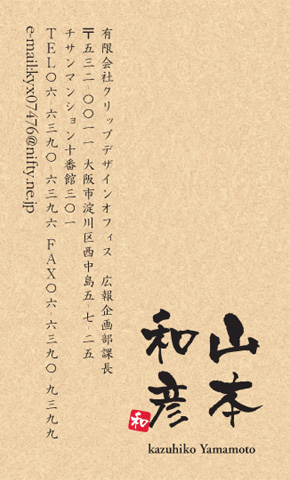 有限会社クリップデザインオフィス 広報企画部課長
〒五三二-〇〇一一 大阪市淀川区西中島五-七-二五
チサンマンション十番館三〇一
TEL〇六-六三九〇-六三九六 FAX〇六-六三九〇-九三九九
e-mail:kyx07476@nifty.ne.jp
山本
和彦
和
kazuhiko Yamamoto